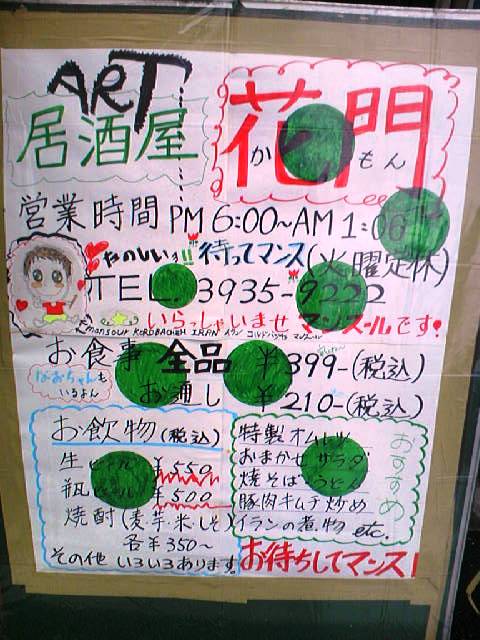 ART
居酒屋
花門
かもん
営業時間 PM 6:00~AM 1:00
たのしいョ!! 待ってマンス (火曜定休)
TEL. 3935-9222
いらっしゃいませ マンスールです!
お食事 全品 ¥399-(税込)
お通し ¥210-(税込)
なおちゃんも
いるよん
お飲物 (税込)
生ビール ¥550
瓶ビール ¥500
焼酎 (麦・芋・米・しそ)
各¥350~
その他 いろいろあります!
おすすめ
特製オムレツ
おまかせサラダ
焼そば うどん
豚肉キムチ炒め
イランの煮物 etc.
お待ちしてマンス!